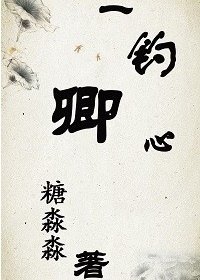 一
钓
卿
心
糖淼淼
著